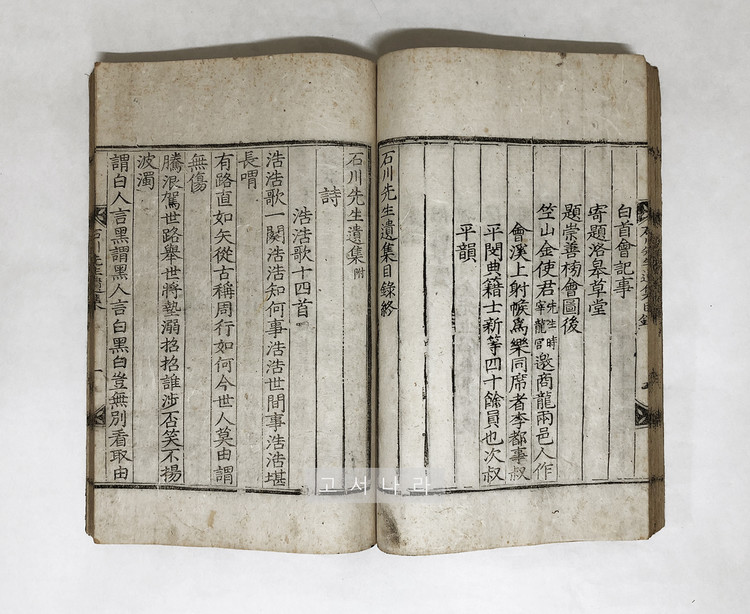 白首會記事
寄題洛皋草堂
題崇善榜會圖後
竺山金使君先生時宰龍宮邀商龍兩邑人作
會溪上射帿爲樂同席者李都事叔
平閔典籍士新等四十餘員也次叔
平韻
石川先生遺集目錄終
石川先生遺集附
詩
浩浩歌十四首
浩浩歌一闋浩浩知何事浩浩世間事浩浩堪
長喟
有路直如矢從古稱周行如何今世人莫由謂
無傷
騰浪駕世路舉世將墊溺招招誰涉否笑不揚
波濁
謂白人言黑謂黑人言白黑白豈無別看取由
石川先生遺集
一
고서나라